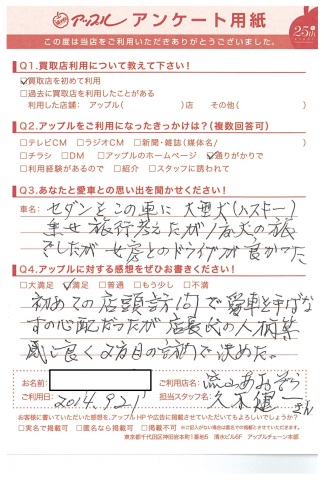 アップル アンケート用紙 25th
この度は当店をご利用いただきありがとうございました。
Q1.買取店利用について教えて下さい！
☑買取店を初めて利用
□過去に買取店を利用したことがある
利用した店舗： アップル（　　　）店　その他（　　　）
Q2.アップルをご利用になったきっかけは？（複数回答可）
□テレビCM □ラジオCM □新聞・雑誌（媒体名／　　　）
□チラシ □DM □アップルのホームページ ☑通りがかりで
□利用経験があるので □紹介 □スタッフに誘われて
Q3.あなたと愛車との思い出を聞かせください！
車名： セダンとこの車に 大型犬（ハスキー）
乗せ 旅行考えたが
でしたが 女房とのドライブが良かった
Q4.アップルに対する感想をぜひお書きください！
□大満足 ☑満足 □普通 □もう少し □不満
初めての店頭訪問で愛車を手ばな
すの心配だったが店長氏の人柄
良く2度目の訪問で決めた。
お名前：
ご利用店名： 流山あおぞら
ご利用日： 2014.9.21
担当スタッフ名： 久木健一さん
お客様に書いていただいた感想を、アップルHPや広告に掲載させていただいてもよろしいでしょうか？
□実名で掲載可 □匿名なら掲載可 □掲載不可 ※ご記入がない場合は匿名での掲載とさせていただきます。
東京都千代田区神田岩本町1番地5 清水ビル6F アップルチェーン本部